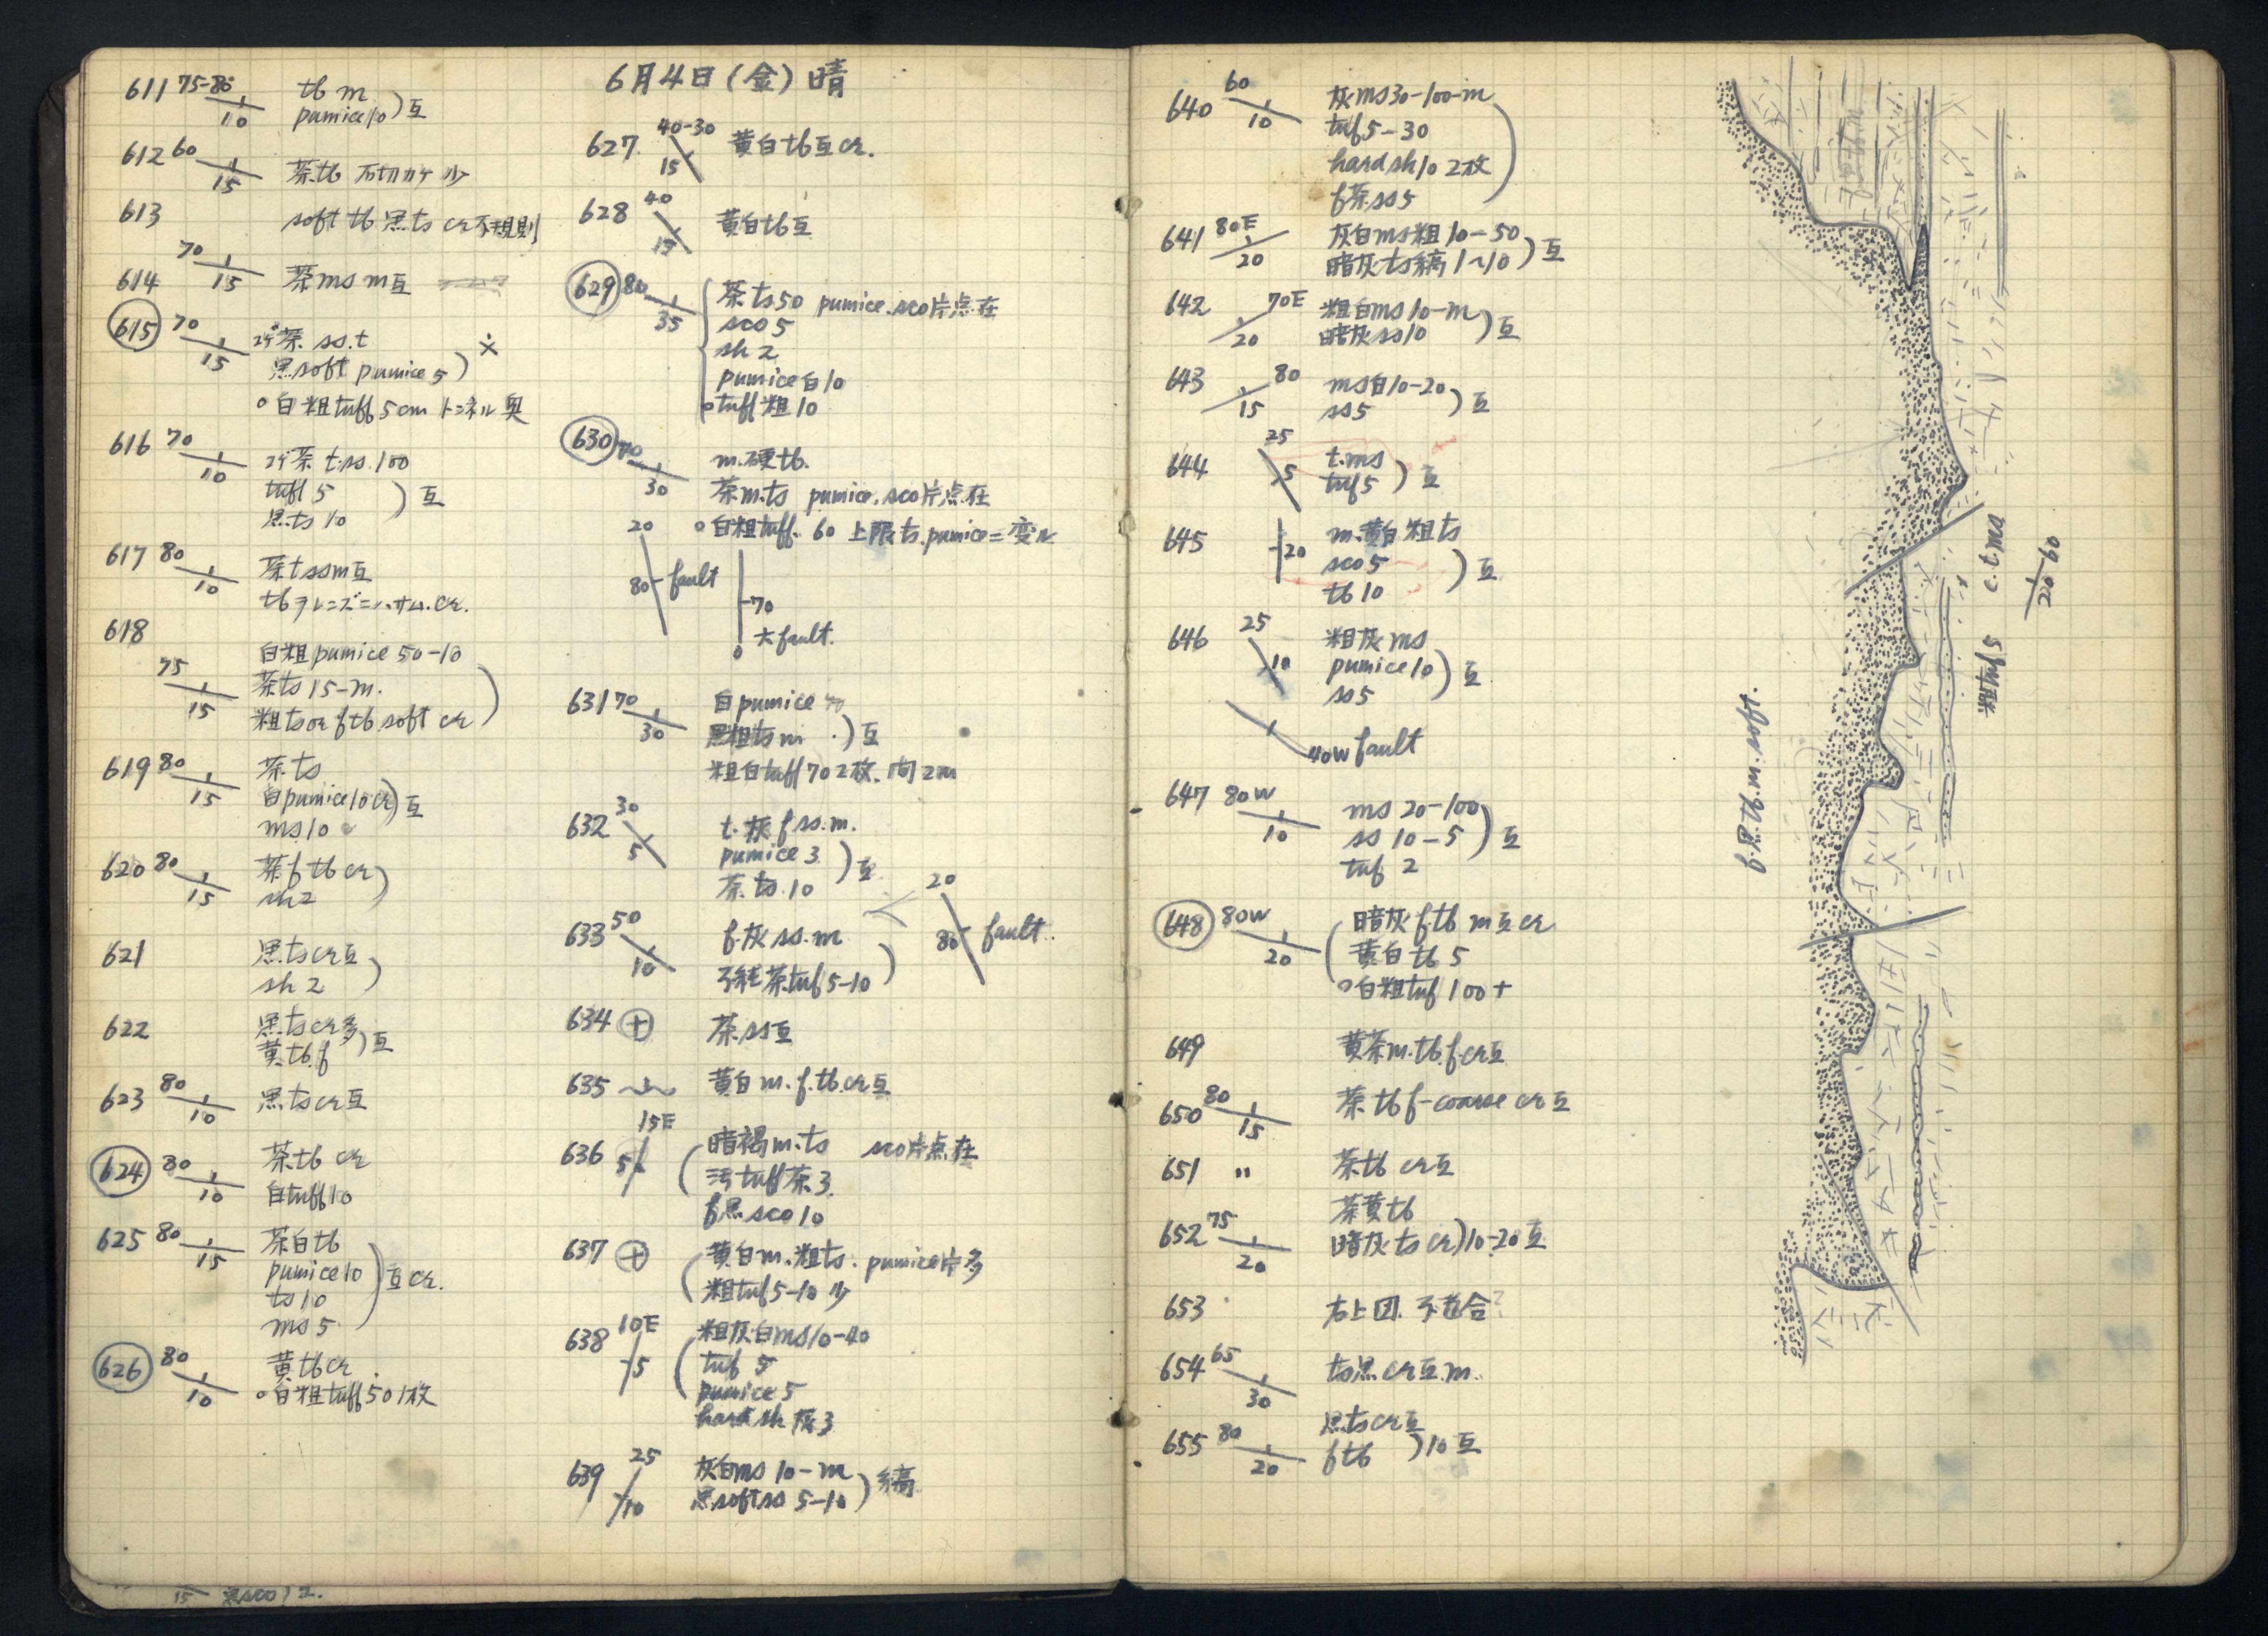 611 75-80 10 tb m
pumice 10 ) 互
612 60 15 茶 tb
613 soft tb 黒 ts cr 不規則
614 70 15 茶 ms m 互
615 70 15 茶 ss.t
黒 soft pumice 5 )
○白粗 tuff 5cm トンネル奥
616 70 10 茶 t.ss.100
tuff 5
黒 ts 10 ) 互
617 80 10 茶 t ss m 互
tb ヲレンズニハサム. cr.
618 白粗 pumice 50-10
75 15 茶 ts 15-m.
粗 ts or f tb soft cr )
619 80 15 茶 ts
白 pumice 10 cr ) 互
ms 10
620 80 15 茶 f tb cr
sh 2 )
621 黒 ts cr 互
sh 2 )
622 黒 ts cr 多
黄 tb.f ) 互
623 80 10 黒 ts cr 互
624 80 10 茶 tb cr
白 tuff 10
625 80 15 茶白 tb
pumice 10
ts 10
ms 5 ) 互 cr.
626 80 10 黄 tb cr.
○白粗 tuff 50 1枚
6月4日(金)晴
627 40-30 15 黄白 tb 互 cr.
628 40 15 黄白 tb 互
629 80 35 茶 ts 50 pumice.sco 片点在
sco 5
sh 2
pumice 白 10
○tuff 粗 10
630 70 30 m.硬 tb.
茶 m.ts pumice.sco 片点在
○白粗 tuff. 60 上限 ts.pumice ニ変ル
20 80 fault
70 大 fault.
631 70 30 白 pumice
黒粗 ts m ) 互
粗白 tuff 70 2枚. 間 2m
632 30 5 t.灰 f ss.m.
pumice 3
茶 ts.10 ) 互
633 50 10 f.灰 ss.m
茶 tuf 5-10 )
20 80 fault.
634 + 茶 ss 互
635 黄白 m.f.tb.cr 互
636 15E 5 暗褐 m.ts sco 片点在
tuff 茶 3
f 黒 sco 10
637 + 黄白 m.粗 ts. pumice 片多
粗 tuf 5-10 少
638 10E 5 粗灰白 ms 10-40
tuf 5
pumice 5
hard sh 灰 3
639 25 10 灰白 ms 10-m
黒 soft ss 5-10 ) 縞
640 60 10 灰 ms 30-100-m
tuf 5-30
hard sh 10 2枚
f 茶 ss 5 )
641 80E 20 灰白 ms 粗 10-50
暗灰 ts 縞 1~10 ) 互
642 70E 20 粗白 ms 10-m
暗灰 ss 10 ) 互
643 80 15 ms 白 10-20
ss 5 ) 互
644 25 5 t.ms
tuf 5 ) 互
645 20 m.黄白粗 ts
sco 5
tb 10 ) 互
646 25 10 粗灰 ms
pumice 10
ss 5 ) 互
40W fault
647 80W 10 ms 20-100
ss 10-5
tuf 2 ) 互
648 80W 20 暗灰 f.tb m 互 cr
黄白 tb 5
○白粗 tuf 100+
649 黄茶 m.tb.f.cr 互
650 80 15 茶 tb f-coarse cr 互
651 〃 茶 tb cr 互
652 75 20 茶黄 tb
暗灰 ts cr ) 10-20 互
653 右上図. 不整合?
654 65 30 ts 黒 cr 互.m.
655 80 20 黒 ts cr 互
f tb ) 10 互
60 20